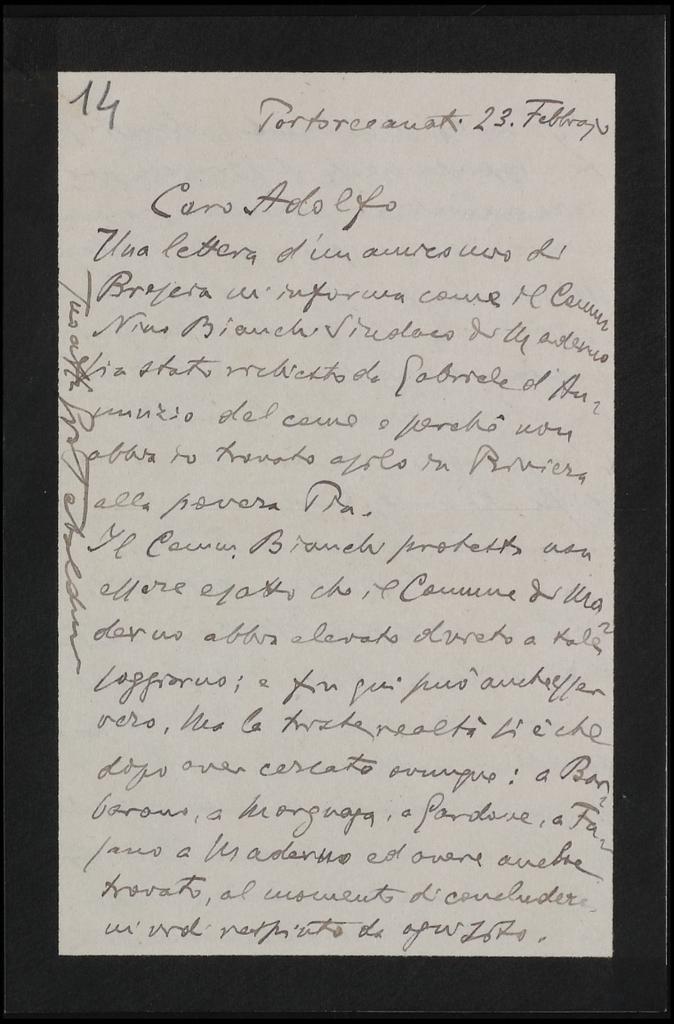 14
Portorecanati. 23. Febbrajo
Caro Adolfo
Una lettera d'un amico mio di
Brescia m'informa come il Comm
Nino Bianchi Sindaco di Maderno
sia stato richiesto da Gabriele d'An-
nunzio del come e perchè non
abbia io trovato asilo in Riviera
alla povera Pia.
Il Comm. Bianchi protesta non
essere esatto che il Comune di Ma-
derno abbia elevato divieto a tale
soggiorno; e fin qui può anche esser
vero. Ma la triste realtà si è che
dopo aver cercato ovunque: a Bar-
barano, a Morgnaga, a Gardone, a Fa-
sano a Maderno ed avere anche
trovato, al momento di concludere
mi vidi respinto da ogni lato.
Tuo aff